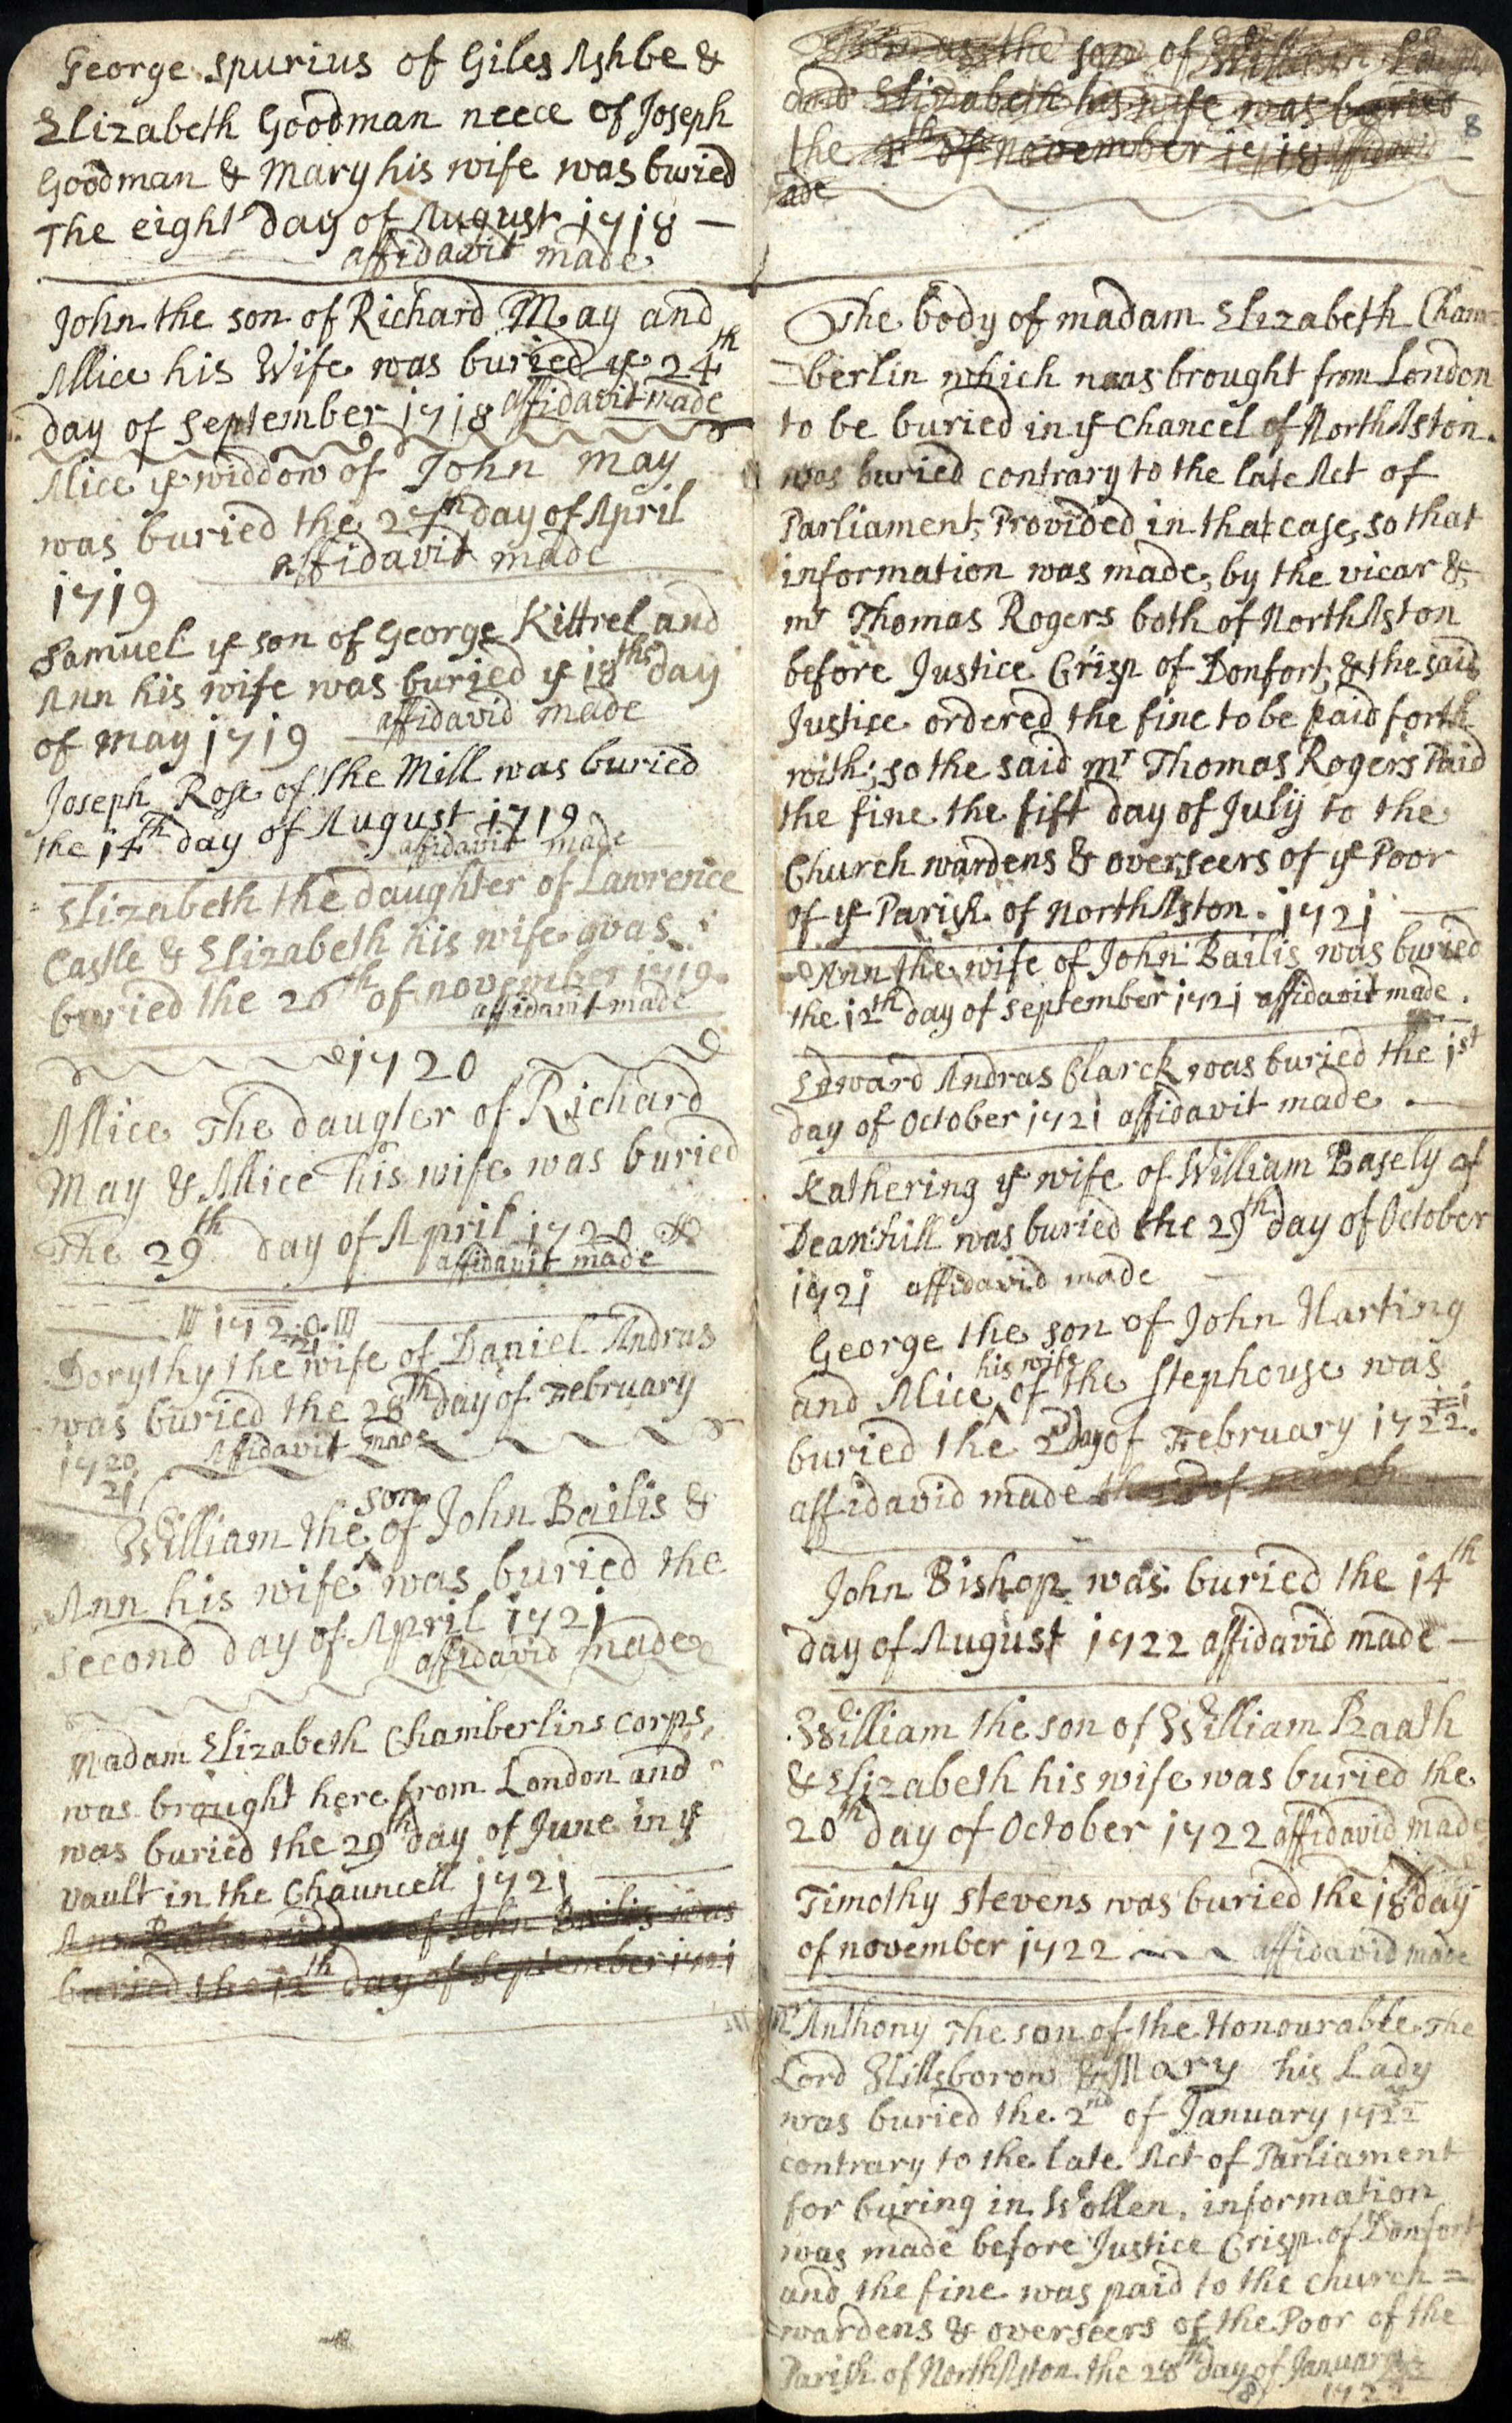 George spurius of Giles Ashbe &
Elizabeth Goodman neece of Joseph
Goodman & Mary his wife was buried
The eight day of August 1718 —
affidavit made
John the son of Richard May and
Allice his Wife was buried ye 24th
day of september 1718 affidavit made
Alice ye widdow of John may
was buried the 27th day of April
affidavit made
1719
Samuel ye son of George Kittrel and
Ann his wife was buried ye 18th day
of may 1719 affidavid made
Joseph Rose of the Mill was buried
the 14th day of August 1719
affidavit made
Elizabeth the daughter of Lawrence
Castle & Elizabeth his wife was
buried the 26th of november 1719
affidavit made
1720
Allice The daugter of Richard
May & Allice his wife was buried
The 29th day of April 1720
affidavit made
1720
21
Dorythy the wife of Daniel Andrus
was buried the 28th day of February
1720 Affidavit made
21
William the son of John Bailis &
Ann his wife was buried the
second day of April 1721
affidavid made
Madam Elizabeth Chamberlins corps,
was brought here from London and
was buried the 29th day of June in ye
vault in the Chauncell 1721
of John Bailis was
buried the 12th day of september 1721
the son of
and Elizabeth his wife was buried
8
the of november 1718 affidavid
ade
The body of madam Elizabeth Cham=
=berlin which was brought from London
to be buried in ye Chancel of North Aston.
was buried contrary to the late Act of
Parliament, Provided in that case, so that
information was made, by the vicar &
mr Thomas Rogers both of North Aston
before Justice Crisp of Donfort, & the said
Justice ordered the fine to be paid forth
with; so the said mr Thomas Rogers Paid
the fine the fift day of July to the
Church wardens & overseers of ye Poor
of ye Parish of North Aston. 1721
Ann the wife of John Bailis was buried
the 12th day of september 1721 affidavit made.
Edward Andras Clarck was buried the 1st
day of October 1721 affidavit made.
Kathering ye wife of William Basely of
Deanhill was buried the 29th day of October
1721 affidavid made
George the son of John Harting
and Alice his wife of the Stephouse was
buried the 2 Day of February 1722.
affidavid made
John Bishop was buried the 14th
day of August 1722 affidavid made —
William the son of William Raath
& Elizabeth his wife was buried the
20th day of October 1722 affidavid made
Timothy Stevens was buried the 18 day
of november 1722 affidavid made
mr Anthony The son of the Honourable The
Lord Hillsborow & Mary his Lady
was buried the 2nd of January 1722
contrary to the late Act of Parliament
for buring in Wollen, information
was made before Justice Crisp of Donfort
and the fine was paid to the church =
=wardens & overseers of the Poor of the
Parish of North Aston the 28th day of January
8 1722